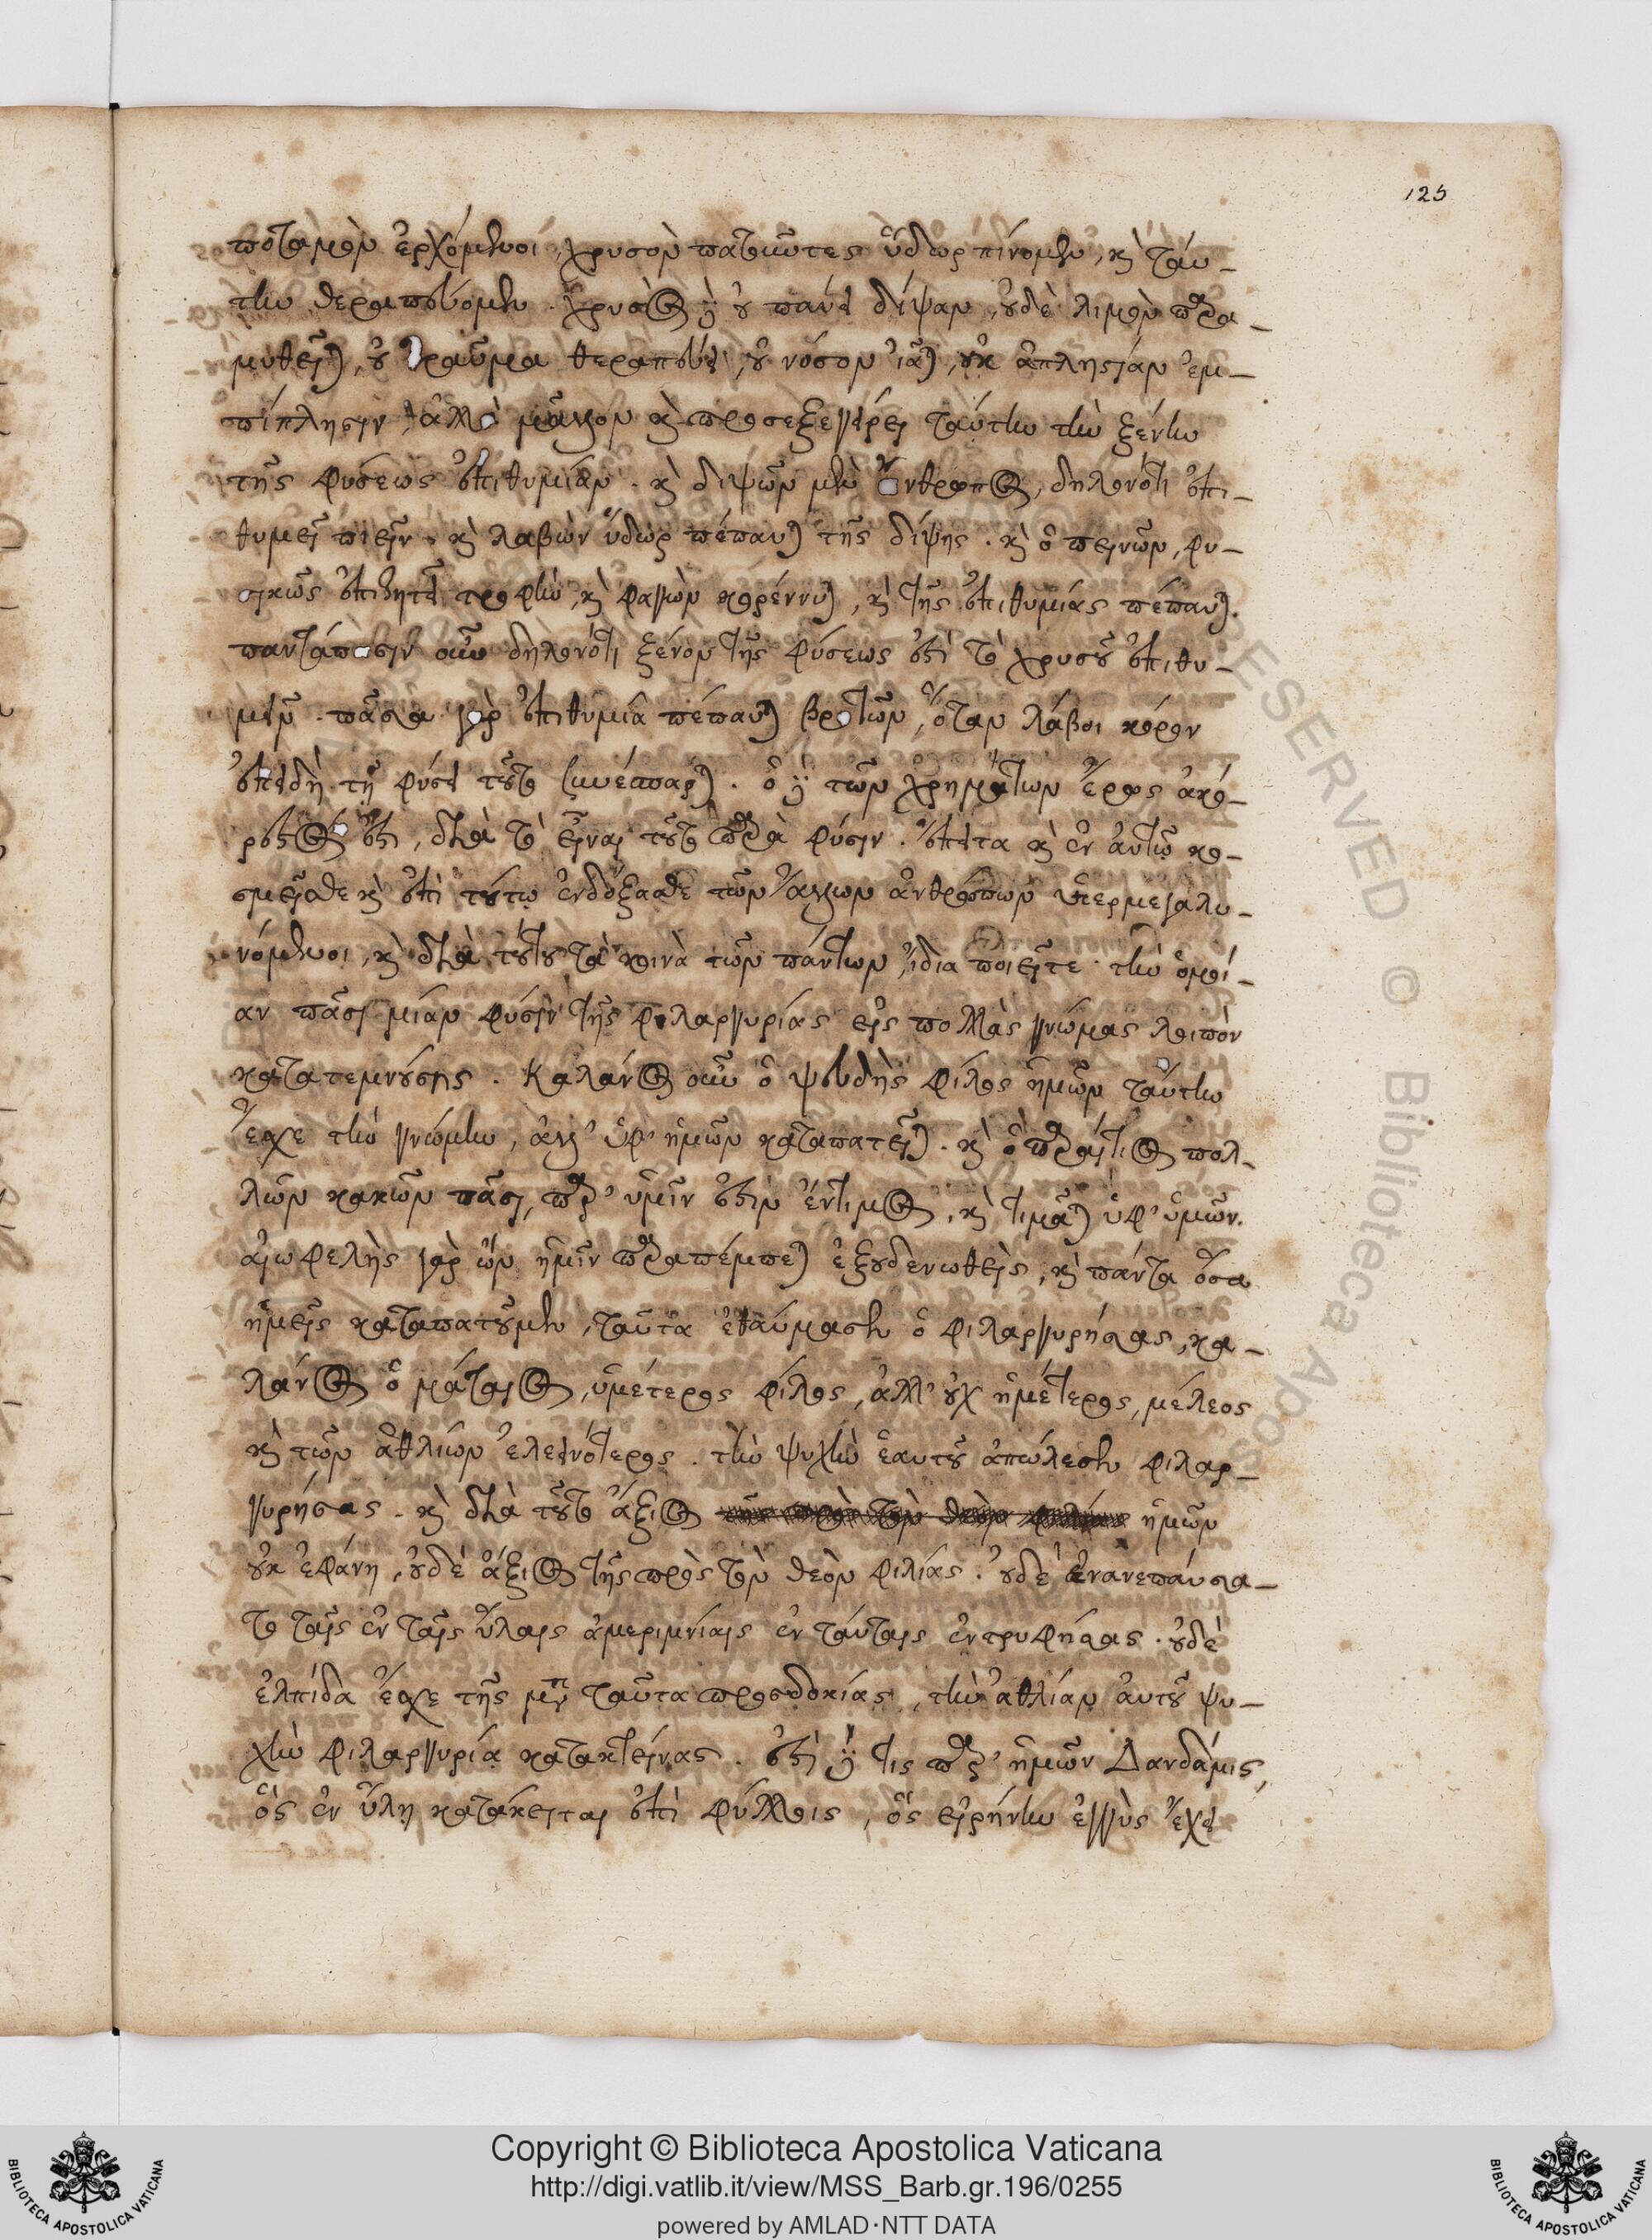 125
ποταμὸν ἐρχόμενοι, χρυσὸν πατοῦντες ὕδωρ πίνομεν, καὶ ταύ-
την θεραπεύομεν. χρυσὸς δὲ οὐ παύει δίψαν, οὐδὲ λιμὸν παρα-
μυθεῖται, οὐ τραῦμα θεραπεύει, οὐ νόσον ἰᾶται, οὐκ ἀπληστίαν ἐμ-
πίπλησιν, ἀλλὰ μᾶλλον καὶ προσεξεγείρει ταύτην τὴν ξένην
τῆς φύσεως ἐπιθυμίαν. καὶ διψῶν μὲν ἄνθρωπος, δηλονότι ἐπι-
θυμεῖ πιεῖν. καὶ λαβὼν ὕδωρ πέπαυται τῆς δίψης. καὶ ὁ πεινῶν, φυ-
σικῶς ἐπιζητεῖ τροφὴν, καὶ φαγὼν κορέννυται, καὶ τῆς ἐπιθυμίας πέπαυται.
παντάπασιν οὖν δηλονότι ξένον τῆς φύσεως ἐστὶ τὸ χρυσοῦ ἐπιθυ-
μεῖν. πᾶσα γὰρ ἐπιθυμία πέπαυται βροτῶν, ὅταν λάβοι κόρον
ἐπειδὴ τῇ φύσει τοῦτο συνέσπαρται. ὁ δὲ τῶν χρημάτων ἔρως ἀκό-
ρεστός ἐστι, διὰ τὸ εἶναι τοῦτο παρὰ φύσιν. ἔπειτα καὶ ἐν αὐτῷ κο-
σμεῖσθε καὶ ἐπὶ τούτῳ ἐνδοξάσθε τῶν ἄλλων ἀνθρώπων ὑπερμεγαλυ-
νόμενοι, καὶ διὰ τούτου τὰ κοινὰ τῶν πάντων, ἴδια ποιεῖτε. τὴν ὁμοί-
αν πᾶσι μίαν φύσιν τῆς φιλαργυρίας εἰς πολλὰς γνώμας λοιπὸν
κατατεμνούσης. Καλάνος οὖν ὁ ψευδὴς φίλος ἡμῶν ταύτην
ἔσχε τὴν γνώμην, ἀλλ' ὑφ' ἡμῶν καταπατεῖται. καὶ ὁ παραίτιος πολ-
λῶν κακῶν πᾶσι, παρ' ὑμῖν ἐστὶν ἔντιμος, καὶ τιμᾶται ὑφ' ὑμῶν.
ἀνωφελὴς γὰρ ὢν ἡμῖν παραπέμπεται ἐξουδενωθεὶς, καὶ πάντα ὅσα
ἡμεῖς καταπατοῦμεν, ταῦτα ἐθαύμασεν ὁ φιλαργυρήσας, κα-
λάνος ὁ μάταιος, ὑμέτερος φίλος, ἀλλ' οὐχ ἡμέτερος, μέλεος
καὶ τῶν ἀθλίων ἐλεεινότερος. τὴν ψυχὴν ἑαυτοῦ ἀπώλεσεν φιλαρ-
γυρήσας. καὶ διὰ τοῦτο ἄξιος ἡμῶν
οὐκ ἐφάνη, οὐδὲ ἄξιος τῆς πρὸς τὸν θεὸν φιλίας. οὐδὲ ἐνανεπαύσα-
το ταῖς ἐν ταῖς ὕλαις ἀμεριμνίαις ἐν ταύταις ἐντρυφήσας. οὐδὲ
ἐλπίδα ἔσχε τῆς μετὰ ταῦτα προσδοκίας, τὴν ἀθλίαν αὐτοῦ ψυ-
χὴν φιλαργυρίᾳ κατακτείνας. ἐστὶ δέ τις παρ' ἡμῶν Δανδάμις,
ὃς ἐν ὕλῃ κατάκειται ἐπὶ φύλλοις, ὃς εἰρήνην ἐγγὺς ἔχει
Copyright © Biblioteca Apostolica Vaticana
http://digi.vatlib.it/view/MSS_Barb.gr.196/0255
powered by AMLAD·NTT DATA
BIBLIOTECA APOSTOLICA VATICANA
BIBLIOTECA APOSTOLICA VATICANA